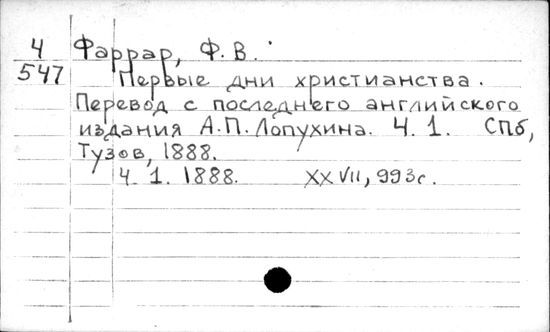 4 Фаррар, Ф. В.
547 Первые дни христианства.
Перевод с последнего английского
издания А.П. Лопухина. Ч. 1. СПб,
Тузов, 1888.
Ч. 1. 1888. XXVII, 993с.